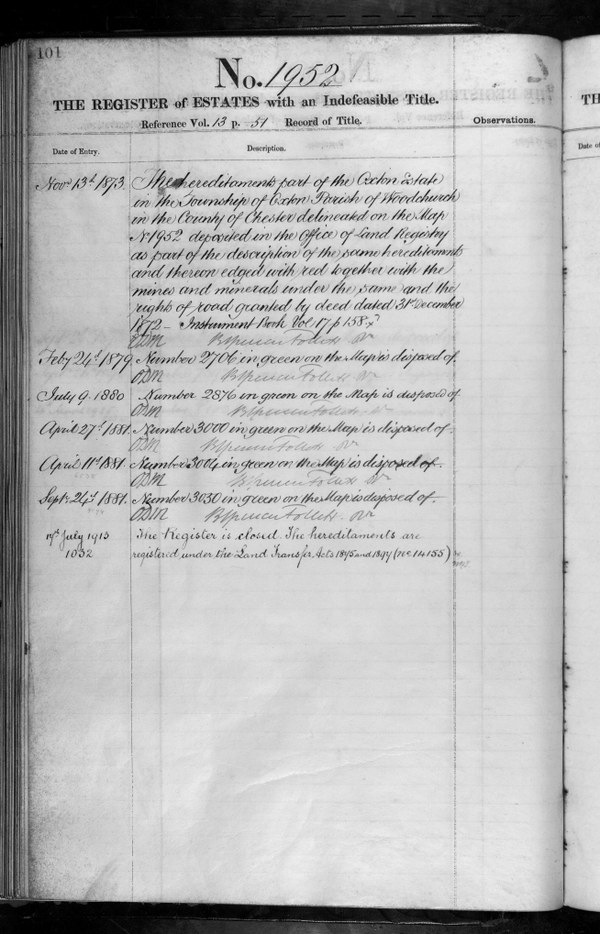 101
No. 1952
THE REGISTER of ESTATES with an Indefeasible Title.
Reference Vol. 13 p. 51 Record of Title.
Observations.
Date of Entry.
Description.
Novr 13th 1873. The hereditaments part of the Oxton Estate
in the Township of Oxton Parish of Woodchurch
in the County of Chester delineated on the Map
No 1952 deposited in the Office of Land Registry
as part of the description of the same hereditaments
and thereon edged with red together with the
mines and minerals under the same and the
rights of road granted by deed dated 31st December
1872 – Instrument Book Vol 17 p 158.
Feby 24th 1879. Number 2706 in green on the Map is disposed of.
July 9. 1880 Number 2876 in green on the Map is disposed of
April 27th 1881. Number 3000 in green on the Map is disposed of.
April 11th 1881. Number 3004 in green on the Map is disposed of.
Septr 24th 1881. Number 3030 in green on the Map is disposed of.
July 1913 The Register is closed. The hereditaments are
1032 registered under the Land Transfer Acts 1875 and 1897 (No. 14155)
TH
Date of